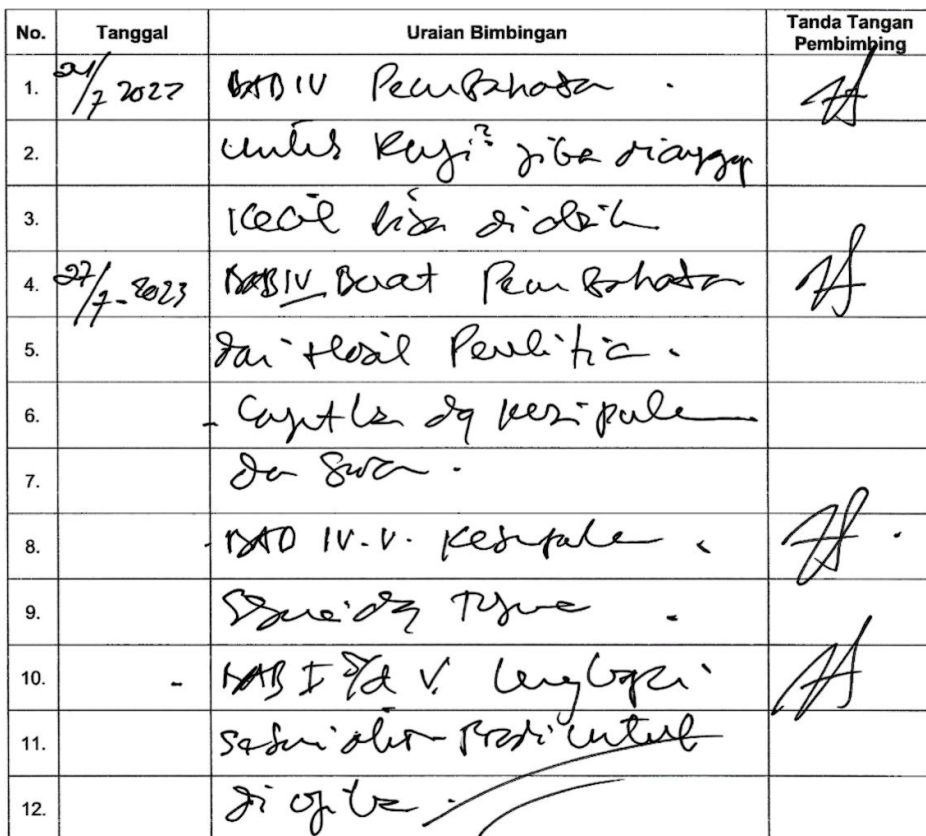 No. Tanggal Uraian Bimbingan Tanda Tangan
Pembimbing
1. 24/7 2023 BAB IV Pembahasan .
2. untuk
3. Kecil bisa
4. 27/7-2023 BAB IV Buat Pembahasan
5. dari Hasil Penelitian .
6. - Lanjutkan dg kesimpulan
7. dan Saran .
8. - BAB IV-V. Kesimpulan .
9. Sesuai dg Tujuan .
10. - BAB I s/d V. Lengkapi
11. sesuai aturan Prodi untuk
12. di ujikan .